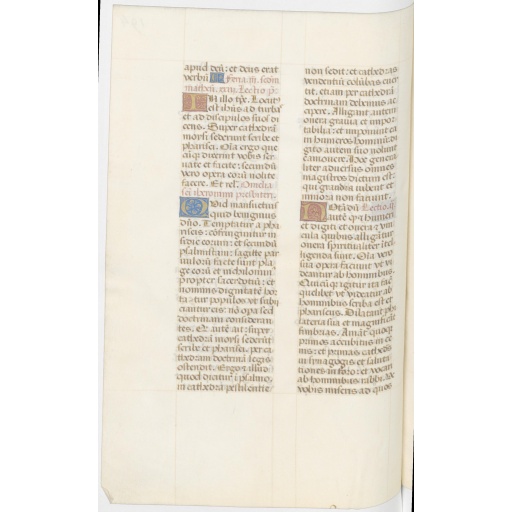 apud deū: et deus erat
verbū Feria .iii. secūn
matheū. xxiii. Lectio p̄:
In illo tpr̄e. Locut̄
est ihūs ad turbas
et ad discipulos suos di
cens. Super cathedrā
moysi sederunt scribe et
pharisei. Oīa ergo que
cūqꝫ dixerint vobis ser
vate et facite: secundū
vero opera eorū nolite
facere. Et rel̄. Omelia
sc̄i iheronimi presbiteri.
Quid mansuetius
quid benignius
dn̄o. Temptatur a pha
riseis: cōfringuntur in
sidie eorum: et secundū
psalmistam: sagitte par
vulorū facte sunt pla
ge eorū et nichilomin᷒
propter sacerdotiū: et
nominis dignitatē hor
tatur populos vt subij
ciantur eis: nō opa sed
doctrinam consideran
tes. Qꝫ autē ait: super
cathedrā moysi sederūt
scribe et pharisei. per ca
thedram doctrinā legis
ostendit. Ergo ⁊ illud:
quod dicitur ī psalmo,
in cathedra pestilentie
non sedit: et cathedras
vendentiū colūbas euer
tit. etiam per cathedrā
doctrinam debemus ac
cipere. Alligant autem
onera gravia et impor
tabilia: et imponunt ea
in humeros hominū: di
gito autem suo nolunt
ea movere. Hoc genera
liter adversus omnes
magistros dictum est:
qui grandia iubent et
minora non faciunt.
Notādū Lectio. ij.
autē qꝫ ⁊ humeri
et digiti et onera ⁊ vin
cula quibus alligātur
onera spiritualiter ītel
ligenda sunt. Oīa vero
sua opera faciunt vt vi
deantur ab hominibus.
Quicūqꝫ igitur ita fac̄
quelibet vt videatur ab
hominibus scriba est et
phariseus. Dilatant phi
lateria sua et magnificāt
fimbrias. Amāt quoqꝫ
primos accubitus in ce
nis: et primas cathedas
in synagogis et saluta
tiones in foro: et vocari
ab hominibus rabbi. Ve
vobis miseris ad quos